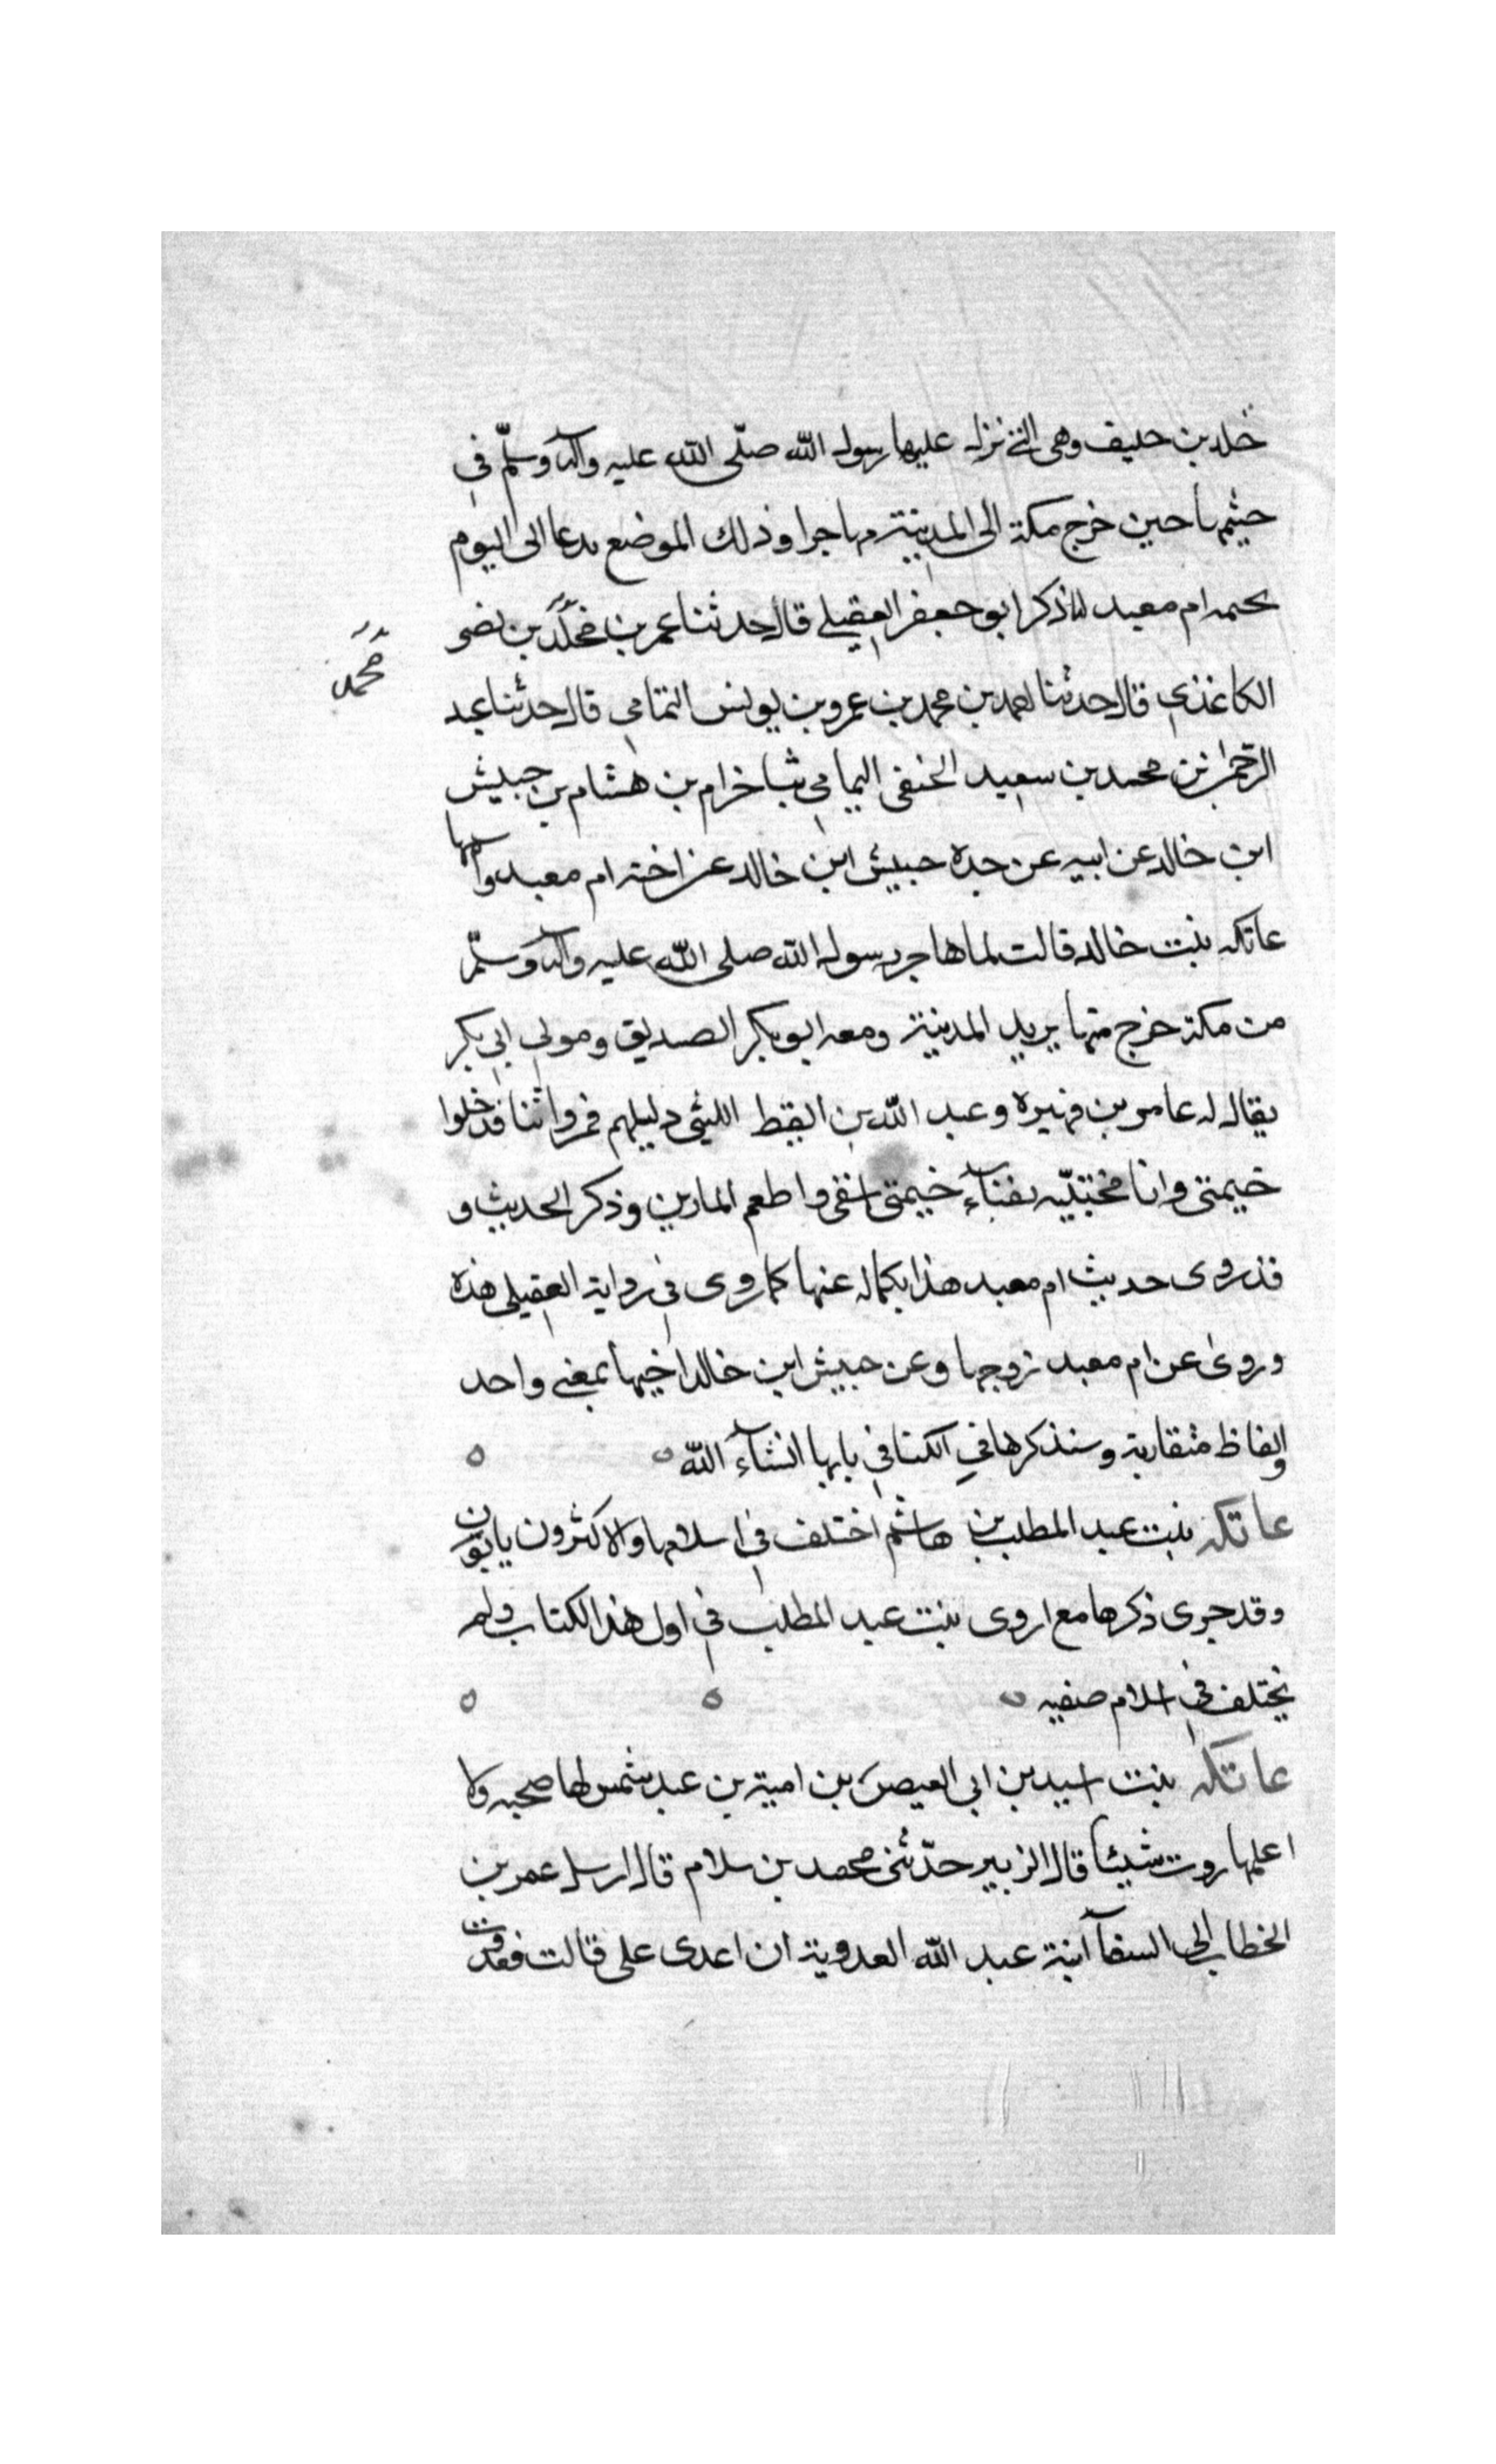 خلد بن حليف وهى التى نزل عليها رسول الله صلّى الله عليه وآله وسلّم في
حيثمها حين خرج مكة الى المدينة مهاجرا وذلك الموضع يدعا الى اليوم
بخيمه ام معبد لما ذكر ابو جعفر العقيلي قال حدثنا عمر بن مخلّد بن نصر
محمد
الكاغذي قال حدثنا احمد بن محمد بن عمرو بن يونس التمامي قال حدثنا عبد
الرحمن بن محمد بن سعيد الحنفى اليمامي ثنا خرام بن هشام بن حبيش
ابن خالد عن ابيه عن جده حبيش ابن خالد عن اخته ام معبد واسمها
عاتكه بنت خالد قالت لما هاجر رسول الله صلى الله عليه وآله وسلّم
من مكة خرج منها يريد المدينة ومعه ابو بكر الصديق ومولى ابي بكر
يقال له عامر بن فهيرة وعبد الله بن القيط الليثي دليلهم فمروا ثنا فدخلوا
خيمتى وانا مختبّيه بفنآء خيمتى اسقى واطعم المارين وذكر الحديث و
قد روى حديث ام معبد هذا بكماله عنها كما روى في رواية العقيلى هذه
وروى عن ام معبد زوجها وعن حبيش ابن خالد اخيها بمعنى واحد
والفاظ متقاربة وسنذكرها في الكنا في بابها انشآء الله
عاتكه بنت عبد المطلب بن هاشم اختلف في اسلامها والاكثرون يابون
وقد جرى ذكرها مع اروى بنت عبد المطلب في اول هذا الكتاب ولم
يختلف في اسلام صفيه
عاتكه بنت اسيد بن ابي العيص بن امية بن عبد شمس لها صحبه ولا
اعلمها روت شيئا قال الزبير حدّثنى محمد بن سلام قال ارسل عمر بن
الخطاب الى السفآ ابنة عبد الله العدوية ان اعدى على قالت فغدوت